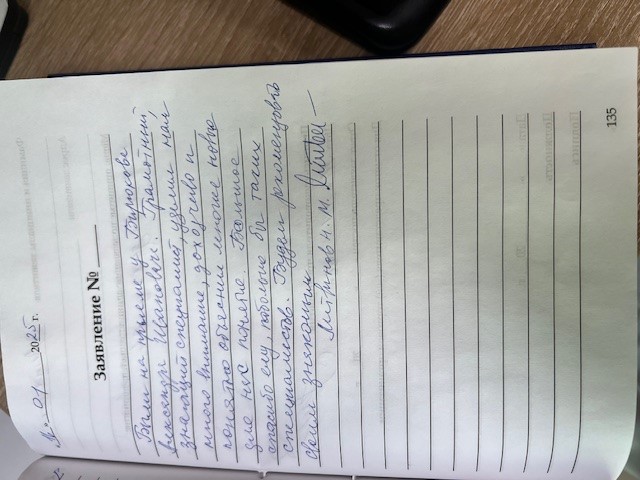 01 2025 г.
Заявление № ____
Были на приеме у Бирюкова
Александра Ивановича. Грамотный,
знающий специалист, уделил нам
много внимания, доходчиво и
понятно объяснил многие новые
для нас понятия. Большое
спасибо ему, побольше бы таких
специалистов. Будем рекомендовать
своим знакомым.
135